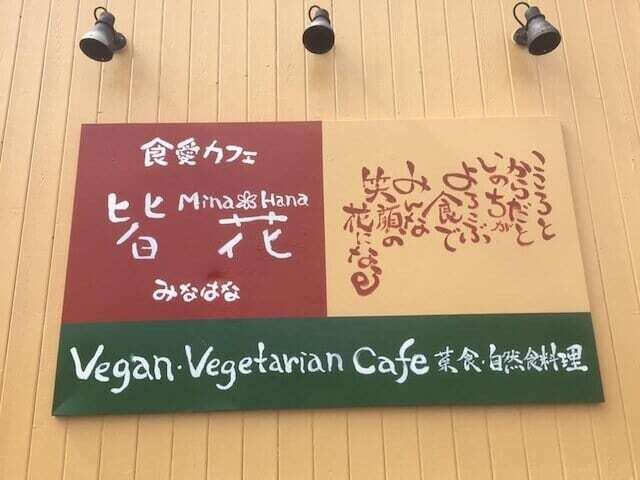 食愛カフェ
Mina Hana
皆花
みなはな
こころと
からだと
いのちが
よろこぶ
食で
みんな
笑顔の
花になる
Vegan・Vegetarian Cafe 菜食・自然食料理